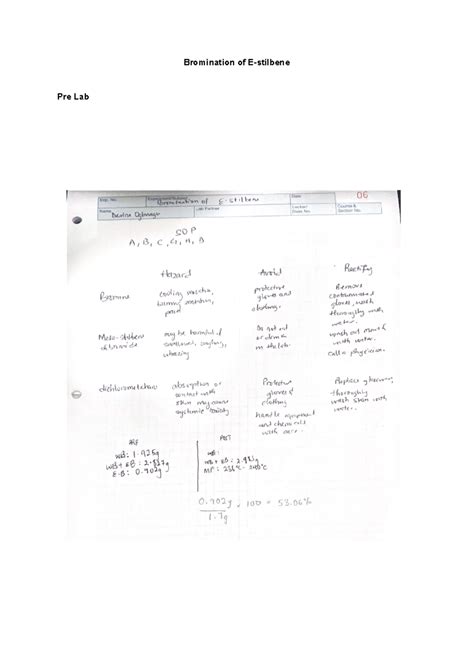 Bromination of E-stilbene
Pre Lab
Exp. No. Bromination of E-stilbene Date 06
Name Lab Partner Locker/ Desk No. Course & Section No.
SOP
A, B, C, G, H, B
Hazard Avoid Rectify
Bromine
protective
gloves and
clothing.
Remove
contaminated
gloves, wash
thoroughly with
water.
Meso-stilbene
dibromide
may be harmful if
swallowed,
Do not eat
or drink
in the lab.
wash out mouth
with water.
call a physician.
dichloromethane
absorption or
contact with
skin may cause
systemic toxicity
Protective
gloves &
clothing
handle equipment
and chemicals
with care.
Replace gloves,
thoroughly
wash skin with
water.
PRE
wb: 1.925g
wb + EB: 2.827g
E.B: 0.902g
POST
WB:
0.902g × 100 = 53.06%
1.7g